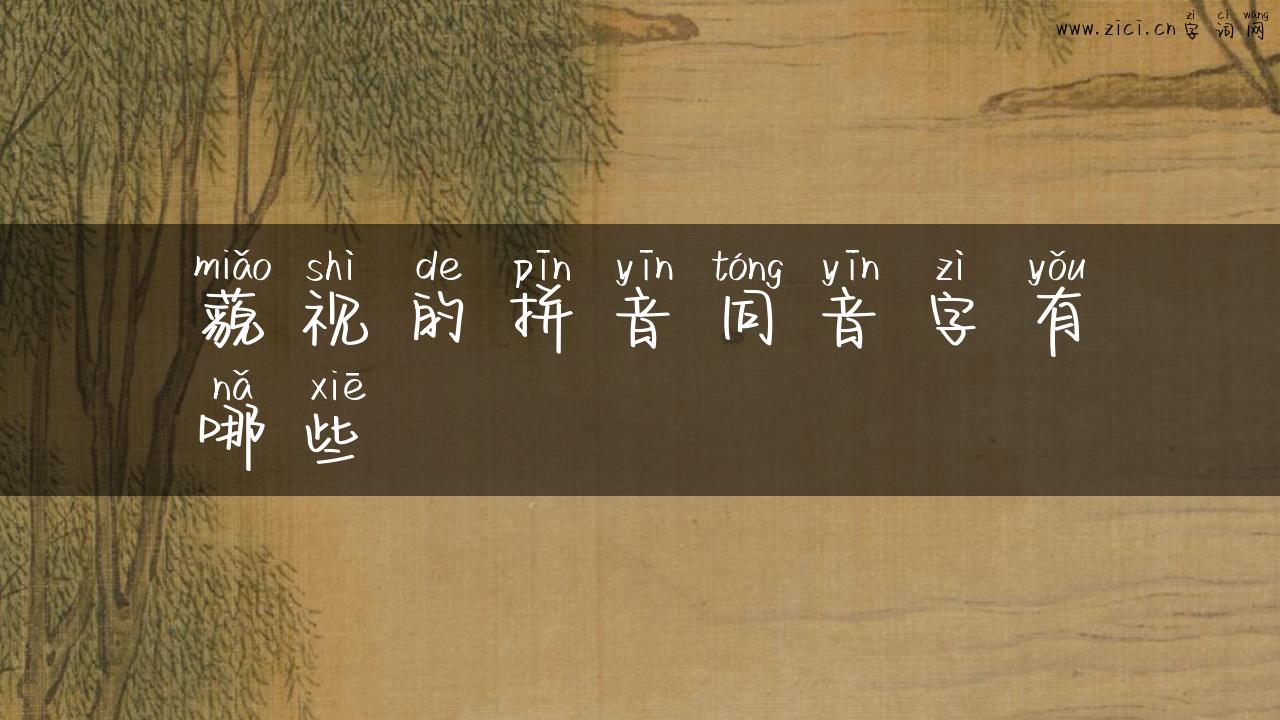 zì cí wǎng
www.zici.cn字词网
miǎo shì de pīn yīn tóng yīn zì yǒu
藐视的拼音同音字有
nǎ xiē
哪些